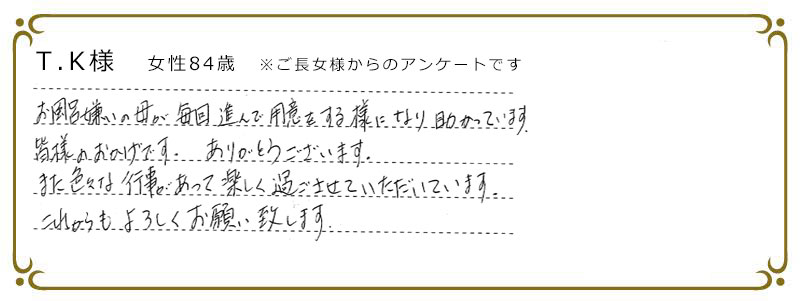 T.K様 女性84歳 ※ご長女様からのアンケートです
お風呂嫌いの母が毎回進んで用意をする様になり助かっています
皆様のおかげです。ありがとうございます。
また色々な行事があって楽しく過ごさせていただいています。
これからもよろしくお願い致します。